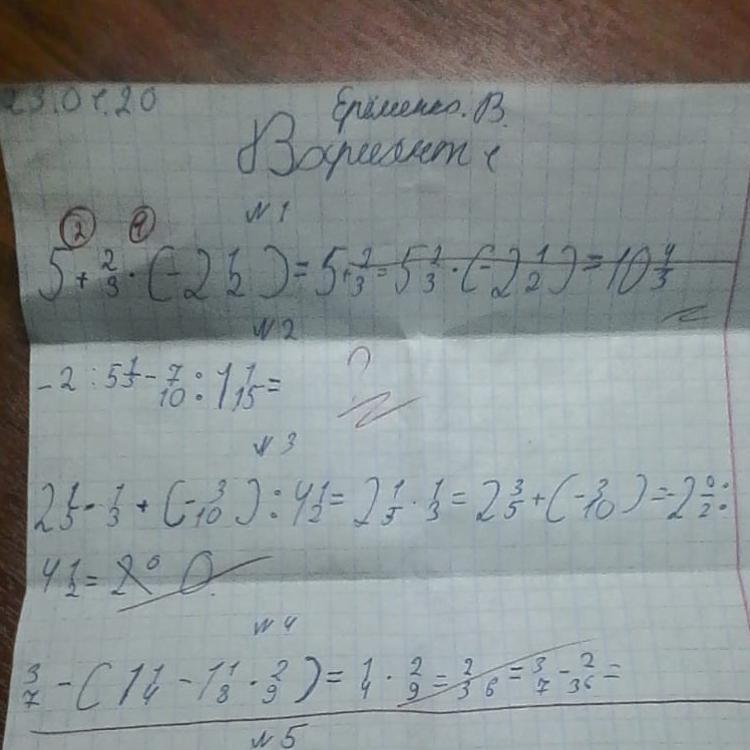 23.01.20
Ерёменко. В.
Вариант 1
№ 1
2 4
5 + 2/3 · (-2 1/2) = 5 + 2/3 = 5 2/3 · (-2 1/2) = 10 4/3
№ 2
-2 : 5 1/3 - 7/10 : 1 1/15 = ?
№ 3
2 1/5 · 1/3 + (-3/10) : 4 1/2 = 2 1/5 · 1/3 = 2 3/5 + (-3/10) = -2 0/2 :
4 1/2 = 2 0 0
№ 4
3/7 - (1 1/4 - 1 1/8 · 2/9) = 1/4 · 2/9 = 2/36 = 3/7 - 2/36 =
№ 5